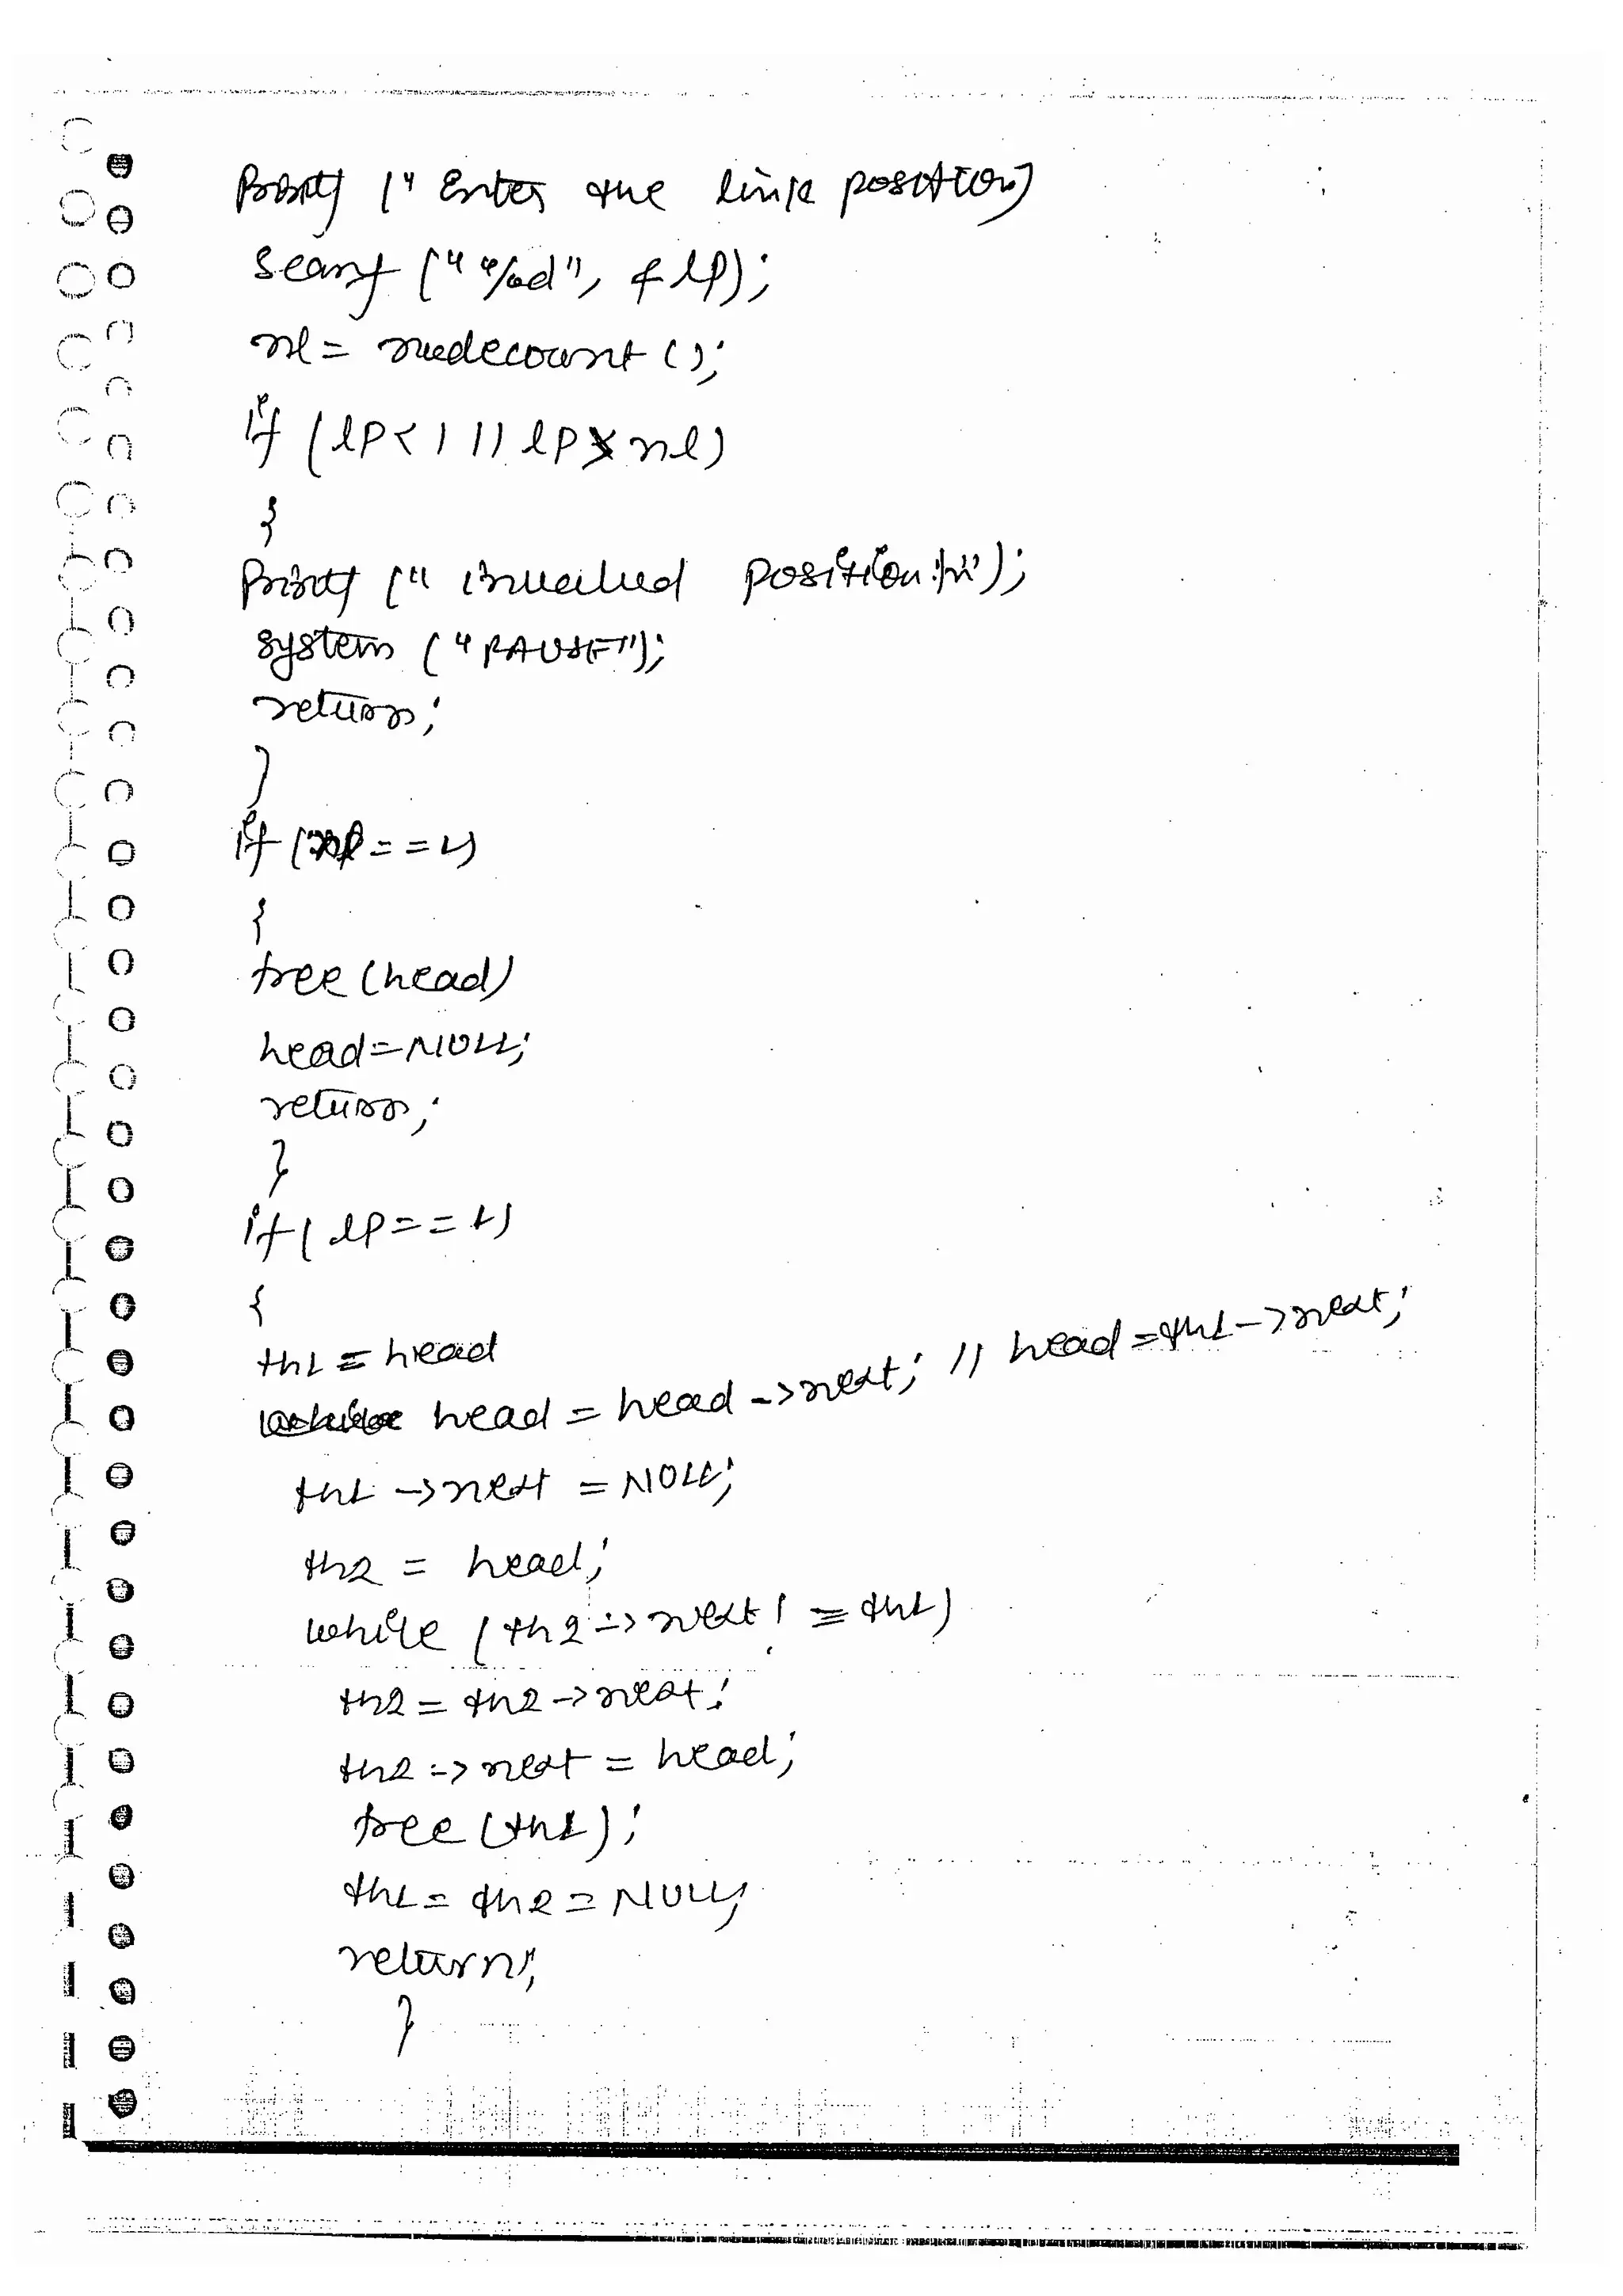 Printf (" Enter the link position)
Scanf ("%d", &lp);
nl = nodecount ();
if (lp<1 || lp>nl)
{
Printf (" invalied position.\n");
system ("PAUSE");
return;
}
if (nl==1)
{
free (head)
head=NULL;
return;
}
if (lp==1)
{
th1 = head
head = head ->next; // head = th1->next;
th1 ->next = NULL;
th2 = head;
while (th2->next != th1)
th2 = th2->next;
th2->next = head;
free (th1);
th1 = th2 = NULL;
return;
}